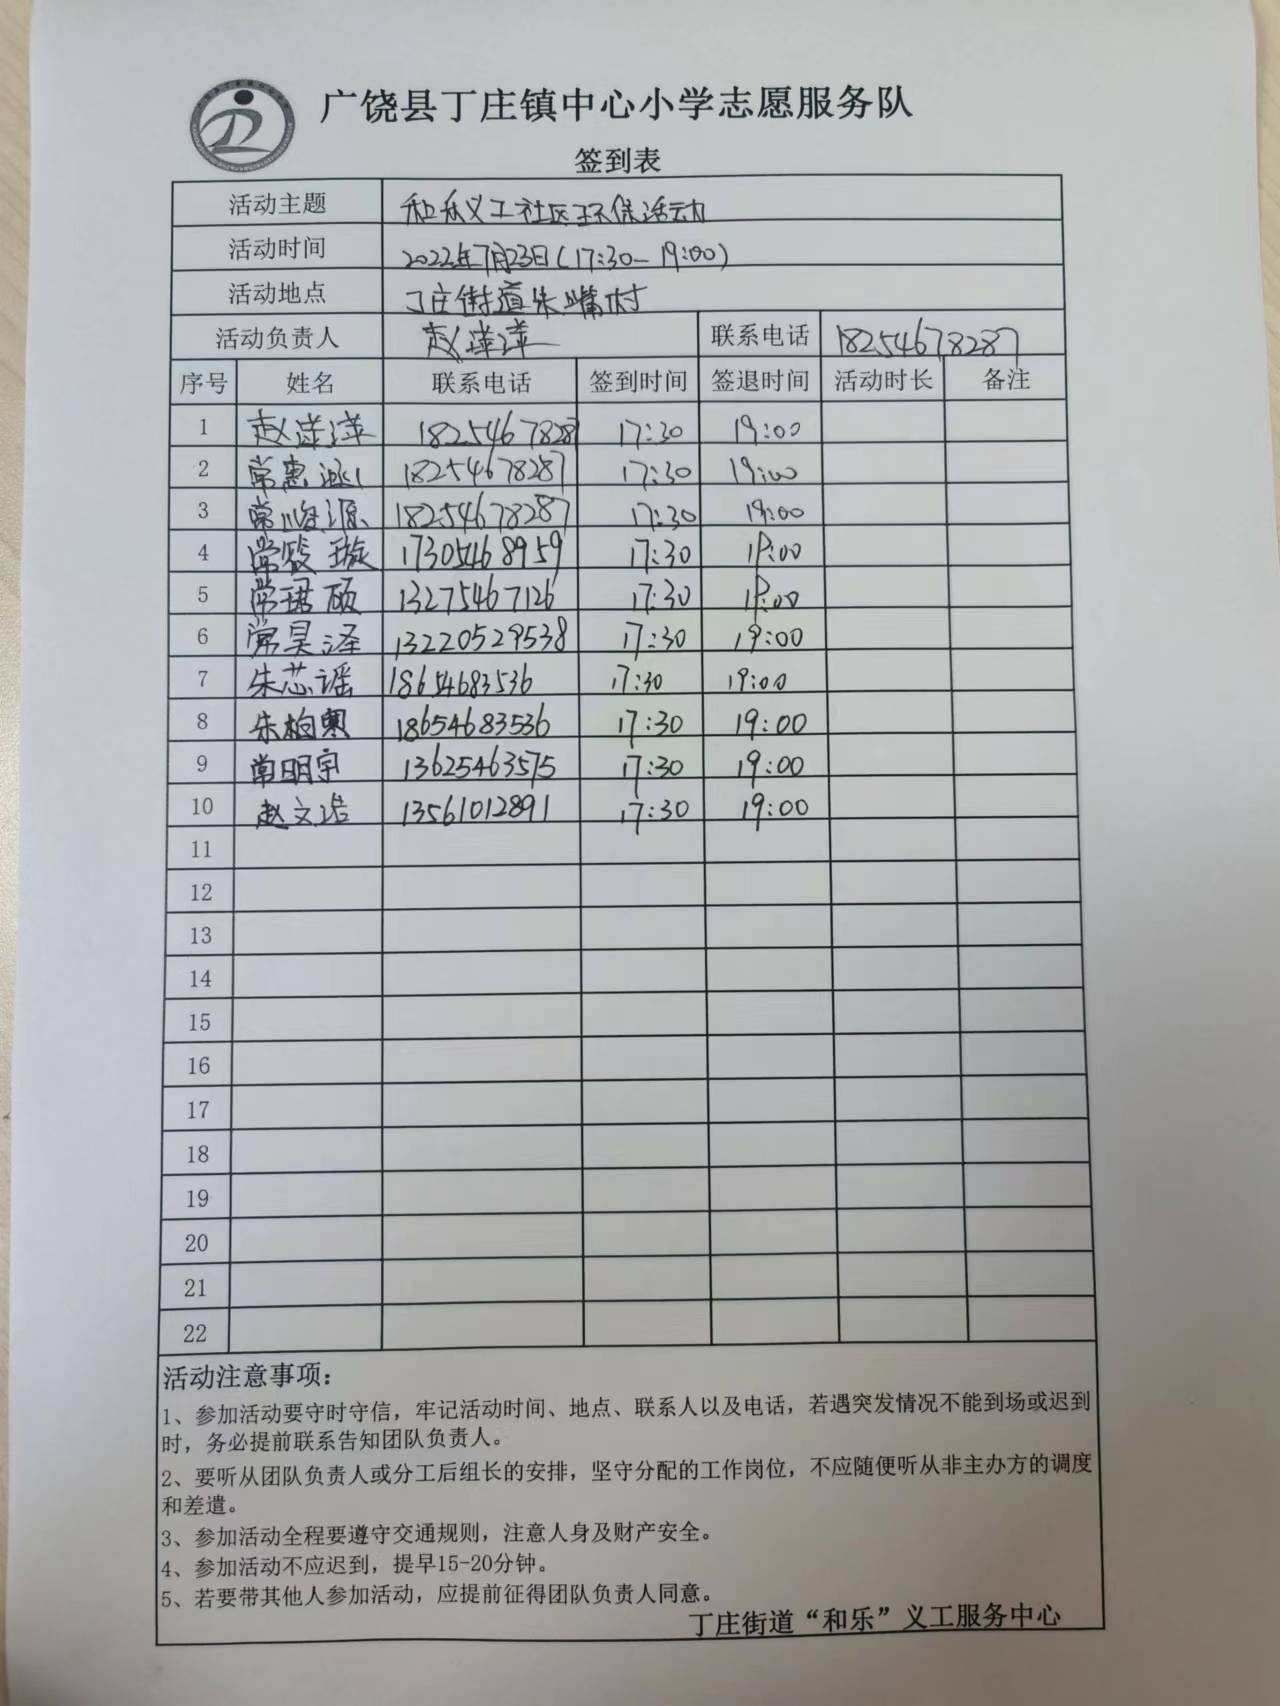 广饶县丁庄镇中心小学志愿服务队
签到表
活动主题 和乐义工社区环保活动
活动时间 2022年7月23日(17:30-19:00)
活动地点 丁庄街道朱嘴村
活动负责人 赵洋洋 联系电话 18254678287
序号 姓名 联系电话 签到时间 签退时间 活动时长 备注
1 赵洋洋 18254678287 17:30 19:00
2 常惠 18254678287 17:30 19:00
3 常峻源 18254678287 17:30 19:00
4 常筱璇 17305468959 17:30 19:00
5 常珺硕 13275467126 17:30 19:00
6 常昊泽 13220529538 17:30 19:00
7 朱芯谣 18654683536 17:30 19:00
8 朱柏奥 18654683536 17:30 19:00
9 常明宇 13625463575 17:30 19:00
10 赵文浩 13561012891 17:30 19:00
11
12
13
14
15
16
17
18
19
20
21
22
活动注意事项:
1、参加活动要守时守信，牢记活动时间、地点、联系人以及电话，若遇突发情况不能到场或迟到
时，务必提前联系告知团队负责人。
2、要听从团队负责人或分工后组长的安排，坚守分配的工作岗位，不应随便听从非主办方的调度
和差遣。
3、参加活动全程要遵守交通规则，注意人身及财产安全。
4、参加活动不应迟到，提早15-20分钟。
5、若要带其他人参加活动，应提前征得团队负责人同意。
丁庄街道“和乐”义工服务中心